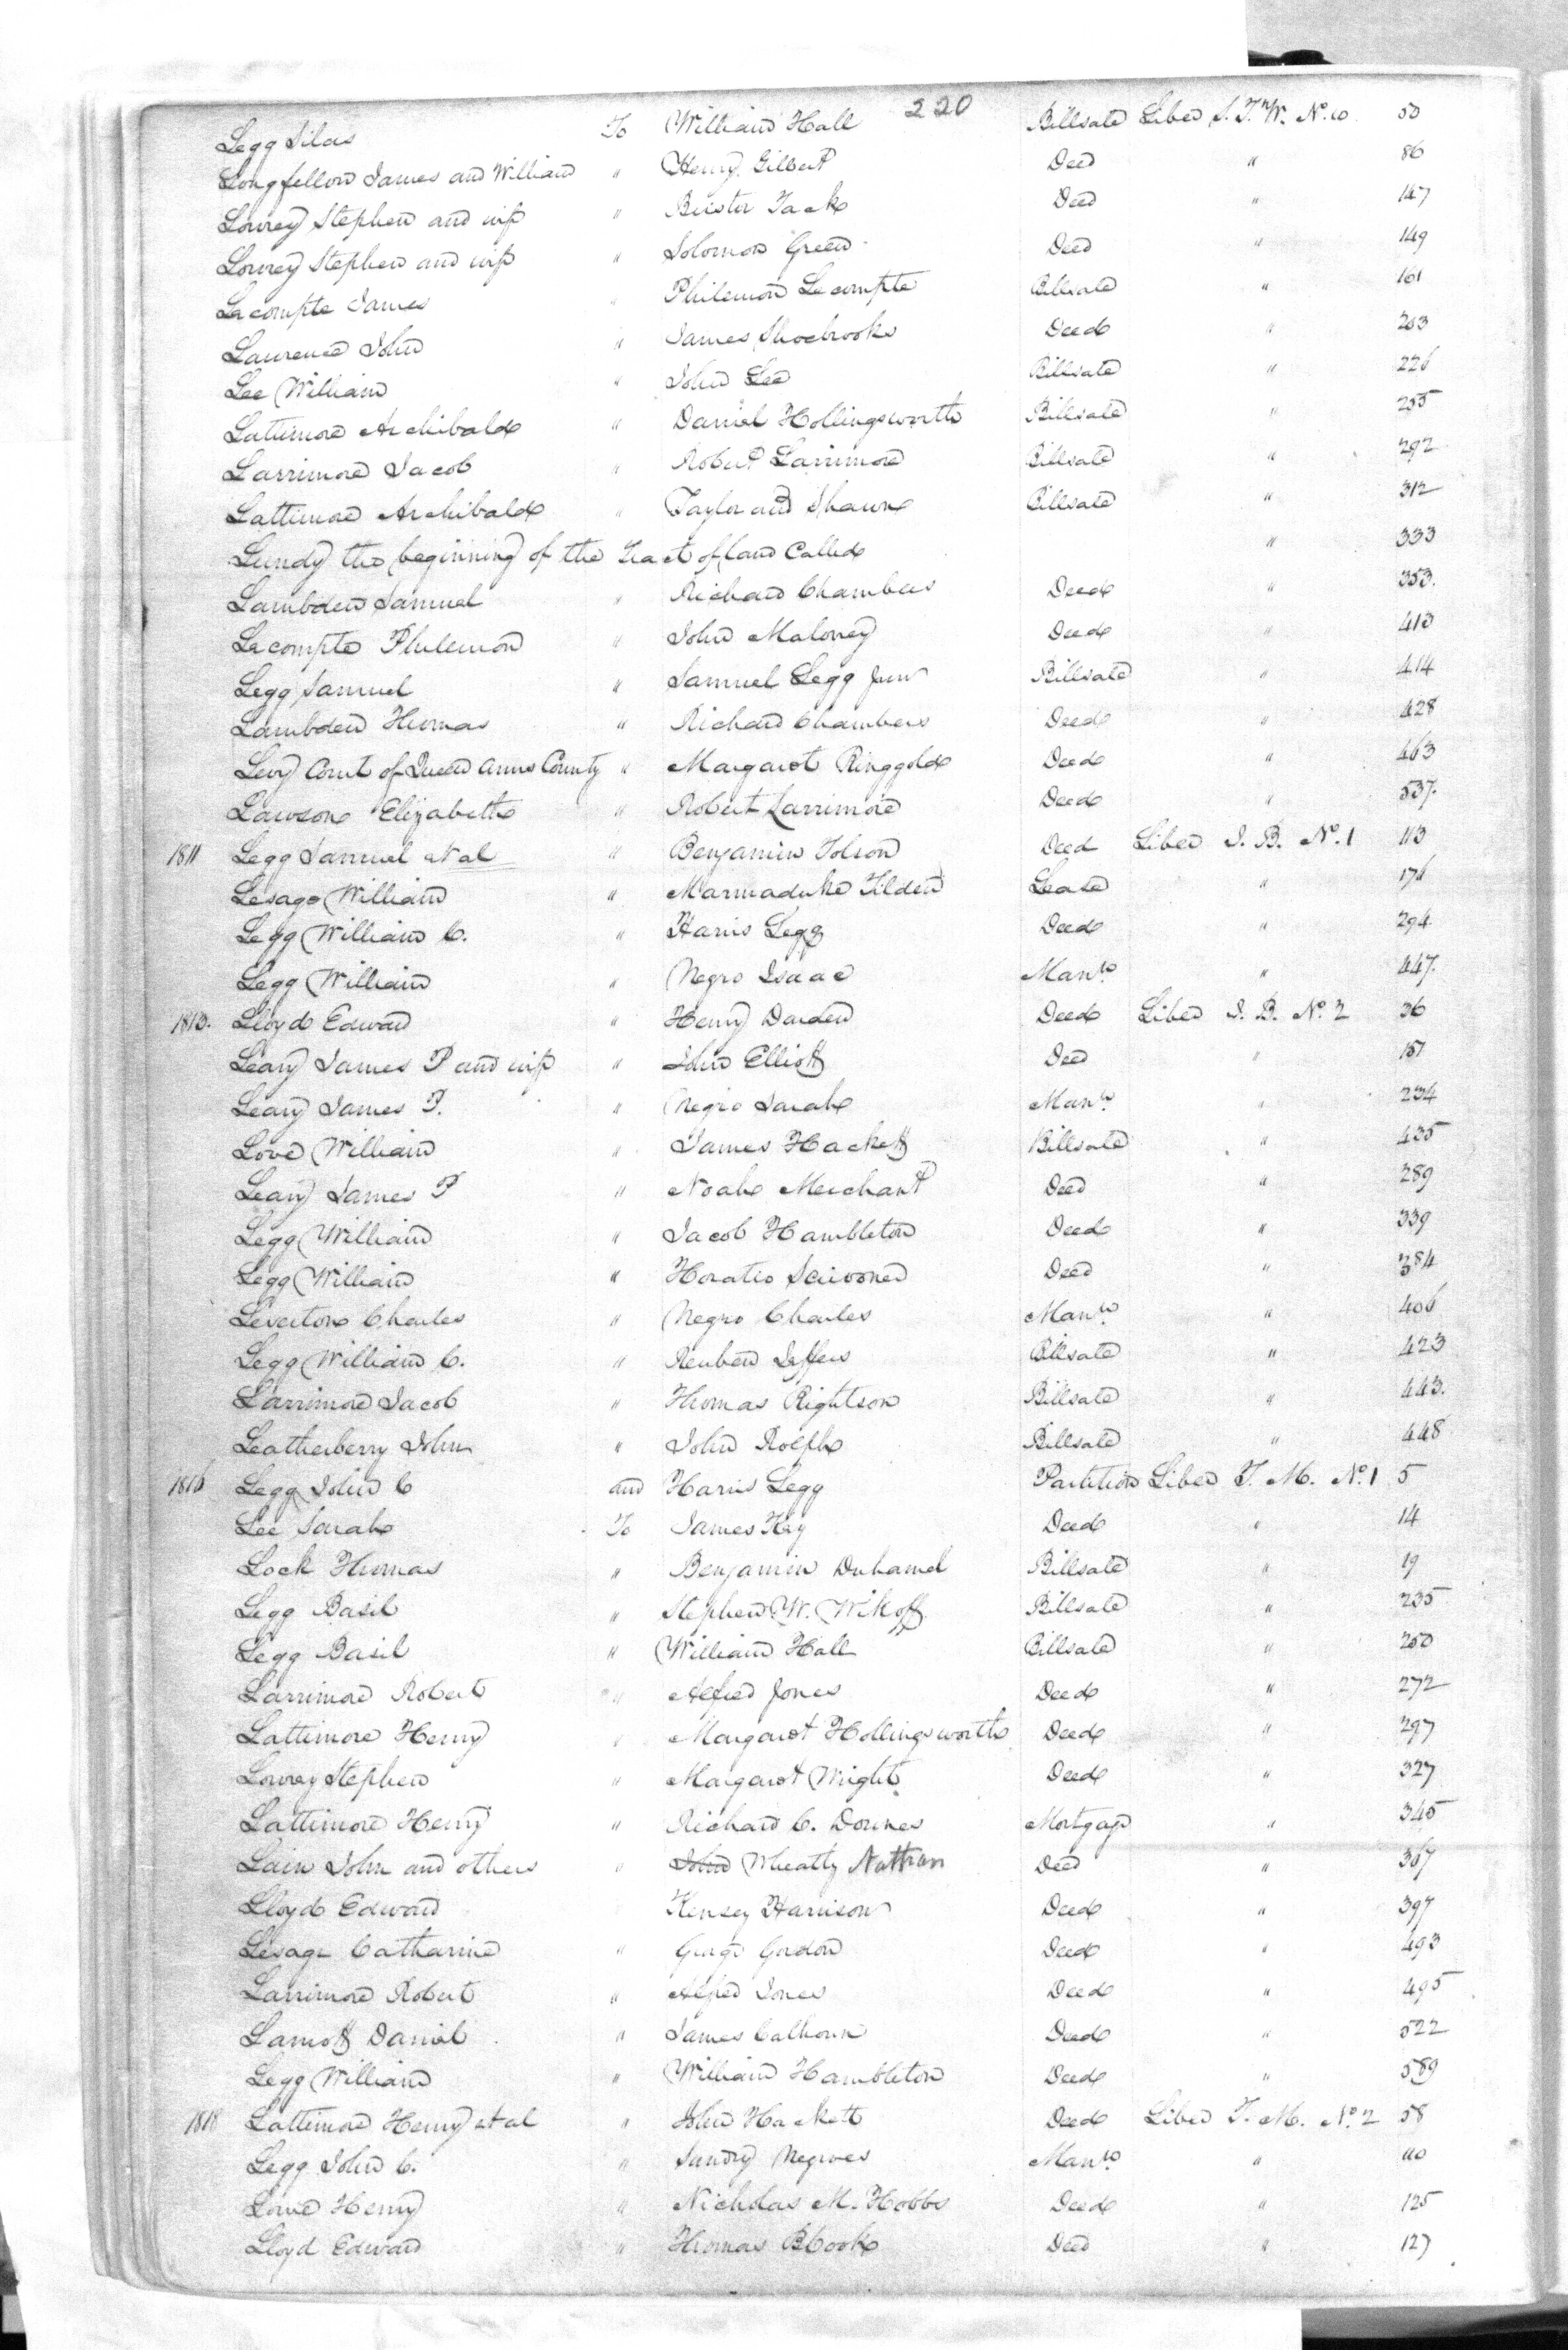 220
Legg Silas To William Hall Billsale Liber S.T.W. No. 10 50
Longfellow James and William " Henry Gilbert Deed " 86
Lowrey Stephen and wife " Jack Deed " 147
Lowrey Stephen and wife " Solomon Green Deed " 149
Lecompte James " Philemon Lecompte Billsale " 161
Laurence John " James Shoebrooks Deed " 203
Lee William " John Lee Billsale " 226
Lattimore Archibald " Daniel Hollingsworth Billsale " 255
Larrimore Jacob " Robert Larrimore Billsale " 292
Lattimore Archibald " Taylor and Shawn Billsale " 312
Lundy the beginning of the Tract of land Called " 333
Lambden Samuel " Richard Chambers Deed " 353.
Lecompte Philemon " John Maloney Deed " 413
Legg Samuel " Samuel Legg Junr Billsale " 414
Lambden Thomas " Richard Chambers Deed " 428
Levy Court of Queen Anns County " Margaret Ringgold Deed " 463
Lawson Elizabeth " Robert Larrimore Deed " 537.
1811 Legg Samuel et al " Benjamin Tolson Deed Liber I. B. No. 1 113
Lesage William " Marmaduke Tilden Lease " 176
Legg William C. " Harris Legg Deed " 294
Legg William " Negro Isaac Mann. " 447.
1813. Lloyd Edward " Henry Darden Deed Liber I. B. No. 2 36
Leary James P and wife " John Elliott Deed " 157
Leary James P. " Negro Sarah Mann. " 234
Love William " James Hackett Billsale " 435
Leary James P " Noah Merchant Deed " 289
Legg William " Jacob Hambleton Deed " 339
Legg William " Horatio Scivoner Deed " 384
Leverton Charles " Negro Charles Mann. " 406
Legg William C. " Reuben Jeffers Billsale " 423
Larrimore Jacob " Thomas Rightson Billsale " 443.
Leatherberry John " John Rolph Billsale " 448
1816 Legg John C and Harris Legg Partition Liber T. M. No. 1 5
Lee Sarah To James Key Deed " 14
Lock Thomas " Benjamin Duhamel Billsale " 19
Legg Basil " Stephen W. Wikoff Billsale " 235
Legg Basil " William Hall Billsale " 250
Larrimore Robert " Alfred Jones Deed " 272
Lattimore Henry " Margaret Hollingsworth Deed " 297
Lowrey Stephen " Margaret Wright Deed " 327
Lattimore Henry " Richard C. Downes Mortgage " 345
Lain John and others " John Wheatly Nathan Deed " 367
Lloyd Edward Kensey Harrison Deed " 397
Lesage Catharine " George Gordon Deed " 493
Larrimore Robert " Alfred Jones Deed " 495
Lamott Daniel " James Calhoun Deed " 522
Legg William " William Hambleton Deed " 589
1818 Lattimore Henry et al " John Hackett Deed Liber T. M. No. 2 58
Legg John C. " Sundry Negroes Manno " 110
Lowe Henry " Nicholas M. Hobbs Deed " 125
Lloyd Edward " Thomas B Cook Deed " 127